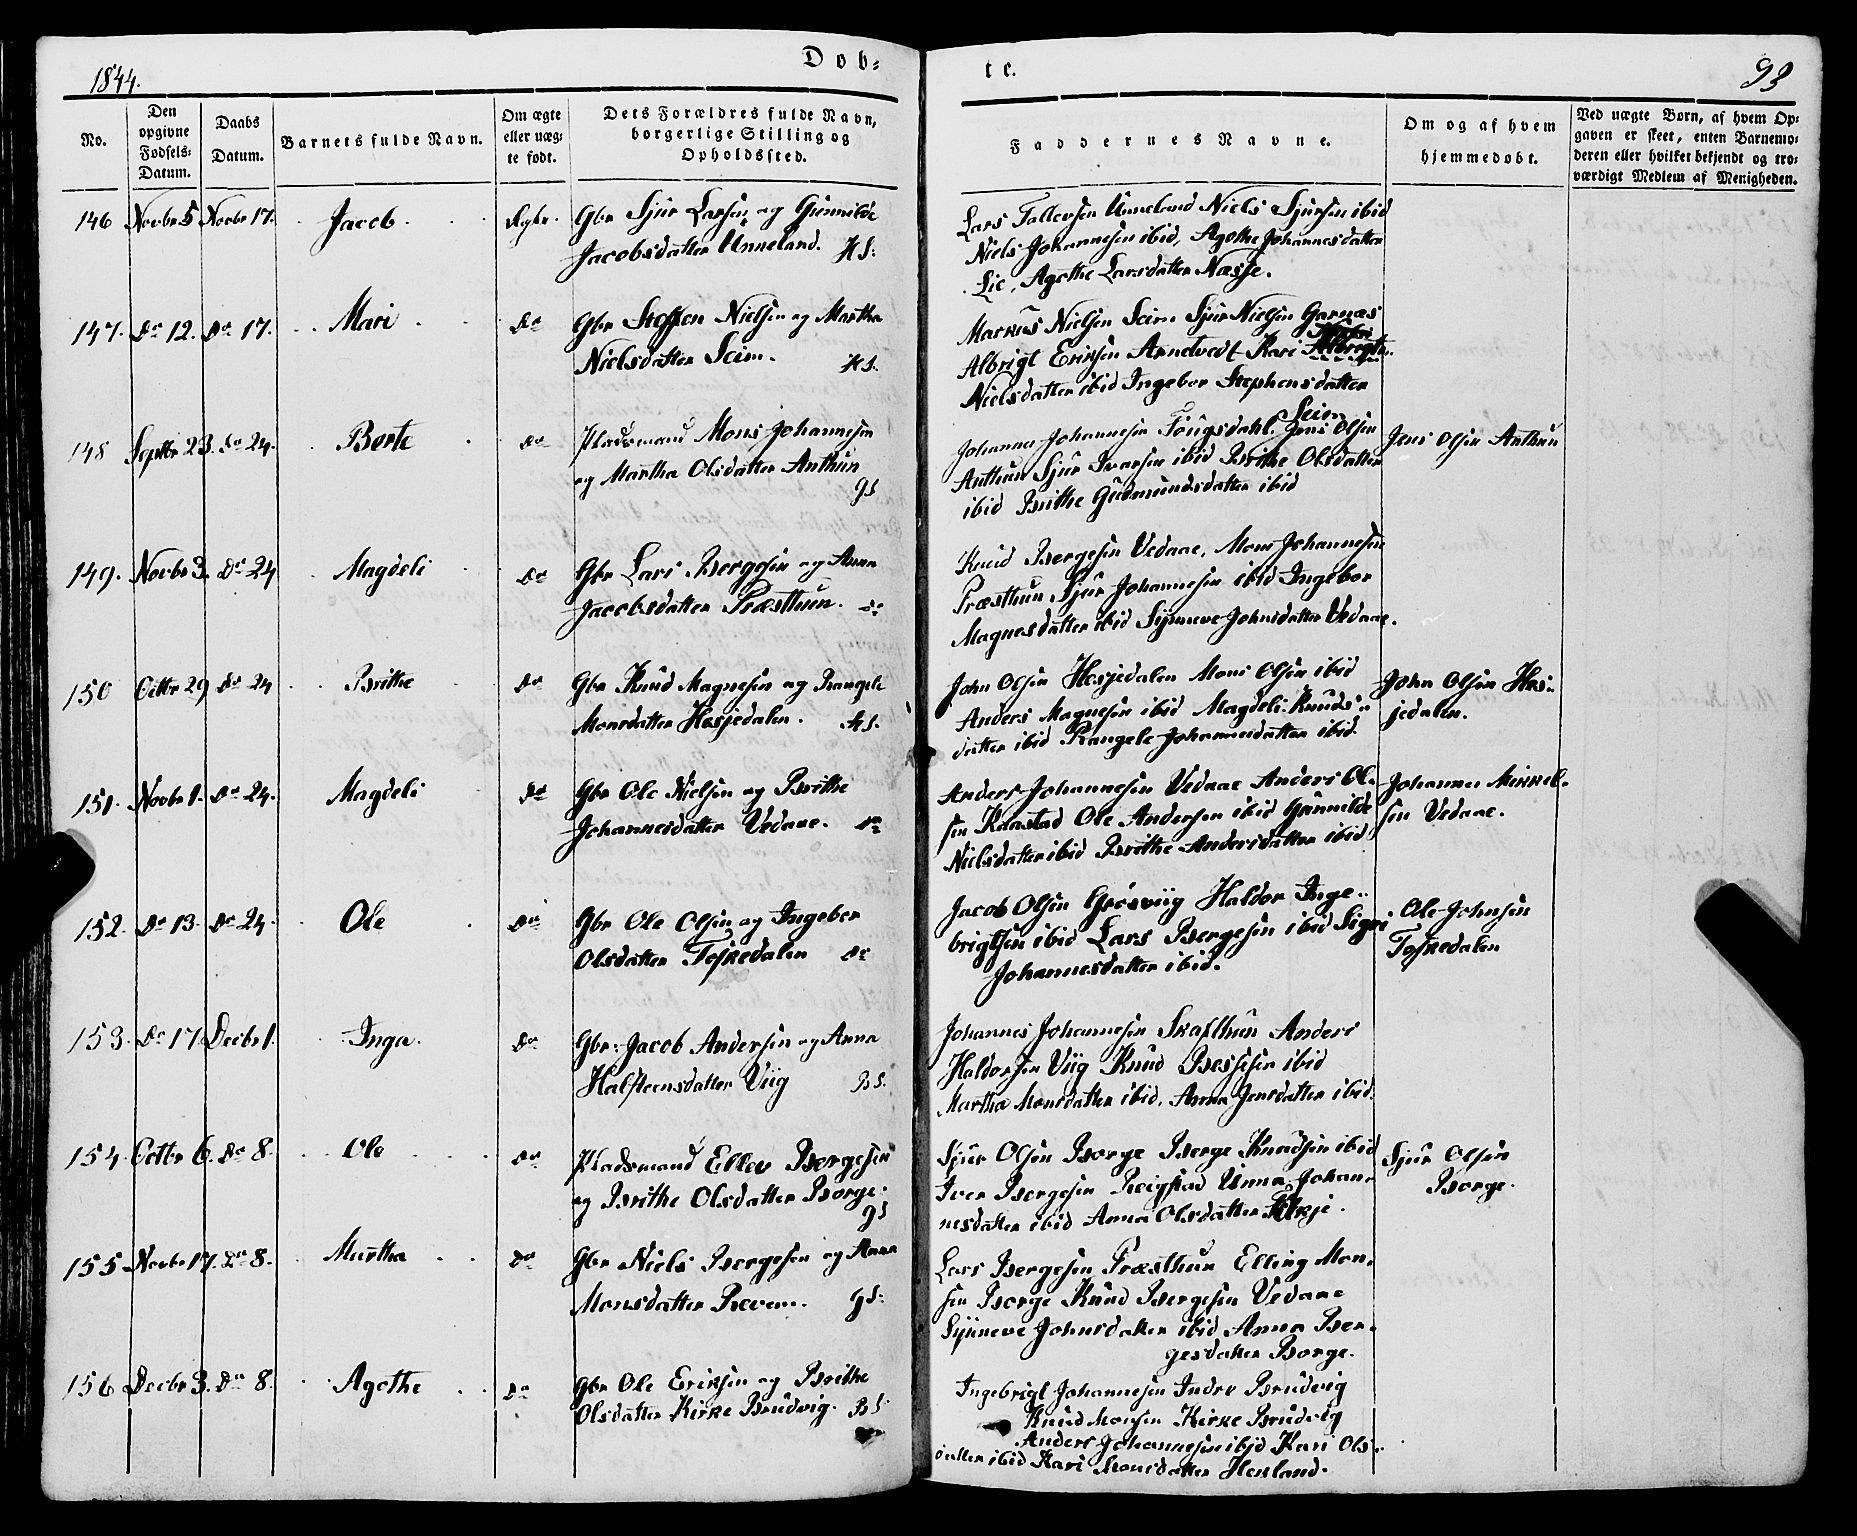 1844.
Døb-
te.
93
No.
Den opgivne Fødsels-Datum.
Daabs Datum.
Barnets fulde Navn.
Om ægte eller uæg-te født.
Dets Forældres fulde Navn, borgerlige Stilling og Opholdssted.
Faddernes Navne.
Om og af hvem hjemmedøbt.
Ved uægte Børn, af hvem Op-gaven er skeet, enten Barnemo-deren eller hvilket bekjendt og tro-værdigt Medlem af Menigheden.
146 Novbr 5 Novbr 17. Jacob. Ægte. Gbr Sjur Larsen og Gunnilde
Jacobsdatter Unneland. HS:
Lars Tollevsen Unneland Niels Sjursen ibid
Niels Johannesen ibid, Agothe Johannesdatter
Lie, Agathe Larsdatter Næsse.
147. Do 12. Do 17. Mari Do Gbr Steffen Nielsen og Martha
Nielsdatter Seim. HS.
Markus Nielsen Seim Sjur Nielsen Garnæs
Albrigt Eriksen Arnetvedt Kari
Nielsdatter ibid Ingebor Stephensdatter
Seim
148 Septbr 23. Do 24. Berte Do Pladsmand Mons Johannesen
og Martha Olsdatter Anthun
gS
Johannes Johannesen Tøugsdahl. Jens Olsen
Anthun Sjur Ivarsen ibid Brithe Olsdatter
ibid Brithe Gudmundsdatter ibid
Jens Olsen Anthun
149. Novbr 3. Do 24 Magdeli Do Gbr Lars Bergesen og Anna
Jacobsdatter Præsthun. Do
Knud Bergesen Vedaae, Mons Johannesen
Præsthun, Sjur Johannesen ibid Ingebor
Magnesdatter ibid Synneve Johnsdatter Vedaae.
150 Octbr 29 Do 24 Brithe Do Gbr Knud Magnesen og Rangele
Monsdatter Hesjedalen. HS.
John Olsen Hesjedalen Mons Olsen ibid
Anders Magnesen ibid Magdeli Knuds-
datter ibid Rangele Johannesdatter ibid.
John Olsen Hes-
jedalen.
151. Novbr 1. Do 24. Magdeli Do Gbr Ole Nielsen og Brithe
Johannesdatter Vedaae. Do
Anders Johannesen Vedaae Anders Ol-
sen Kaastad Ole Andersen ibid Gunnilde
Nielsdatter ibid Brithe Andersdatter ibid
Johannes Mikkel-
sen Vedaae.
152. Do 13. Do 24. Ole Do Gbr Ole Olsen og Ingebor
Olsdatter Toskedalen Do
Jacob Olsen Grøsviig Haldor Inge-
brigtsen ibid Lars Bergesen ibid Sigri
Johannesdatter ibid.
Ole Johnsen
Toskedalen
153. Do 17. Decbr 1. Inga. Do Gbr. Jacob Andersen og Anna
Halsteensdatter Viig BS.
Johannes Johannesen Skafthun Anders
Haldorsen Viig Knud Bessesen ibid
Martha Monsdatter ibid. Anna Jensdatter ibid.
154 Octbr 6. Do 8. Ole Do Pladsmand Ellev Bergesen
og Brithe Olsdatter Borge.
gS
Sjur Olsen Borge Berge Knudsen ibid
Iver Bergesen Reigstad Unna Johan-
nesdatter ibid Anna Olsdatter
Sjur Olsen
Borge.
155 Novbr 17. Do 8. Martha Do Gbr Niels Bergesen og Anna
Monsdatter Reven. gS:
Lars Bergesen Præsthun Elling Mon-
sen Borge Knud Bergesen Vedaae
Synneve Johnsdatter ibid Anna Ber-
gesdatter Borge.
156 Decbr 3. Do 8. Agathe Do Gbr Ole Eriksen og Brithe
Olsdatter Kirke Brudvig. BS.
Ingebrigt Johannesen Indre Brudvig
Knud Monsen Kirke Brudvig
Anders Johannesen ibid Kari Ols-
datter ibid Kari Monsdatter Henland.